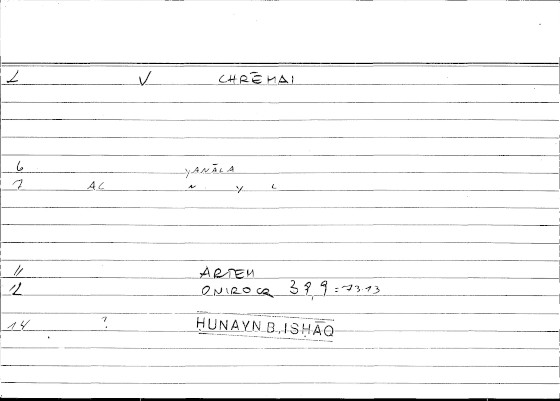 1 V CHRĒMAI
6 yANĀLA
7 AC N y L
11 ARTEM
12 ONIROCR 38,9 = 73.13
14 ? ḤUNAYN B. ISḤĀQ